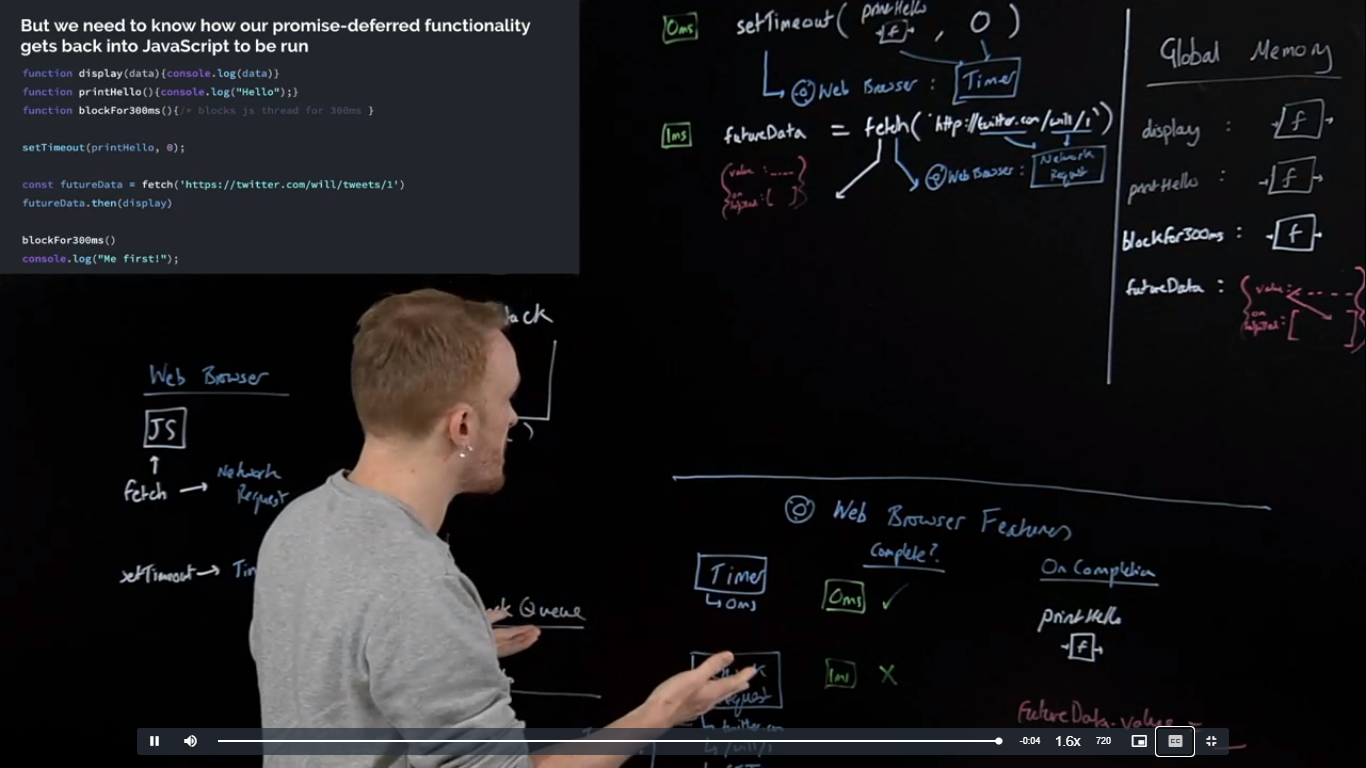 But we need to know how our promise-deferred functionality
gets back into JavaScript to be run
function display(data){console.log(data)}
function printHello(){console.log("Hello");}
function blockFor300ms(){/* blocks js thread for 300ms }
setTimeout(printHello, 0);
const futureData = fetch('https://twitter.com/will/tweets/1')
futureData.then(display)
blockFor300ms()
console.log("Me first!");
0ms setTimeout( printHello f , 0 )
Web Browser : Timer
1ms futureData = fetch('http://twitter.com/will/1')
value :
Web Browser : Network
Request
Global Memory
display : f
printHello : f
blockfor300ms : f
futureData :
value :
Web Browser
JS
fetch → Network
Request
setTimeout →
Queue
Web Browser Features
Complete?
On Completion
Timer
0ms
0ms ✓
printHello
f
1ms X
futureData.value
-0:04 1.6x 720 CC